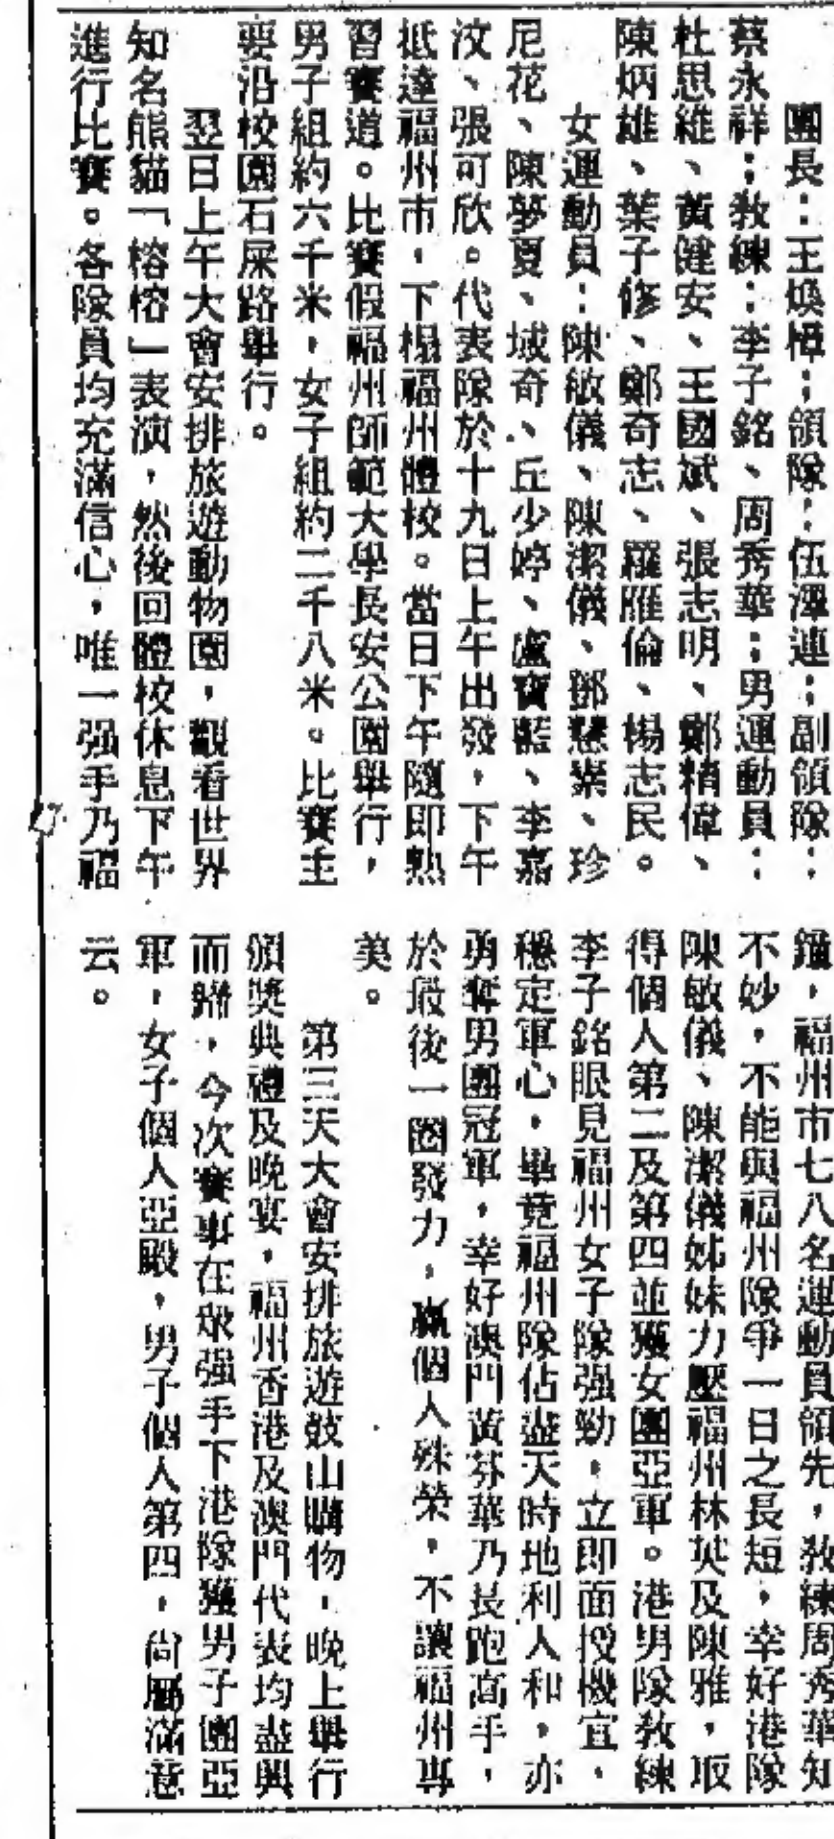 團長：王煥樟；領隊：伍澤連；副領隊：
蔡永祥；教練：李子銘、周秀華；男運動員：
杜思維、黃健安、王國斌、張志明、鄭精偉、
陳炳雄、葉子修、鄭奇志、羅雁倫、楊志民。
女運動員：陳敏儀、陳潔儀、鄧慧樂、珍
尼花、陳夢夏、域奇、丘少婷、盧寶藍、李嘉
汶、張可欣。代表隊於十九日上午出發，下午
抵達福州市，下榻福州體校。當日下午隨即熟
習賽道。比賽假福州師範大學長安公園舉行，
男子組約六千米，女子組約二千八米。比賽主
要沿校園石屎路舉行。
翌日上午大會安排旅遊動物園，觀看世界
知名熊貓「榕榕」表演，然後回體校休息下午
進行比賽。各隊員均充滿信心，唯一强手乃福
鑼，福州市七八名運動員領先，教練周秀華知
不妙，不能與福州隊爭一日之長短，幸好港隊
陳敏儀、陳潔儀姊妹力壓福州林英及陳雅，取
得個人第二及第四並獲女團亞軍。港男隊教練
李子銘眼見福州女子隊强勁，立即面授機宜，
穩定軍心，畢竟福州隊佔盡天時地利人和，亦
勇奪男團冠軍，幸好澳門黃芬華乃長跑高手，
於最後一圈發力，贏個人殊榮，不讓福州專
美。
第三天大會安排旅遊鼓山購物，晚上舉行
頒獎典禮及晚宴，福州香港及澳門代表均盡興
而歸，今次賽事在眾强手下港隊獲男子團亞
軍，女子個人亞殿，男子個人第四，尚屬滿意
云。